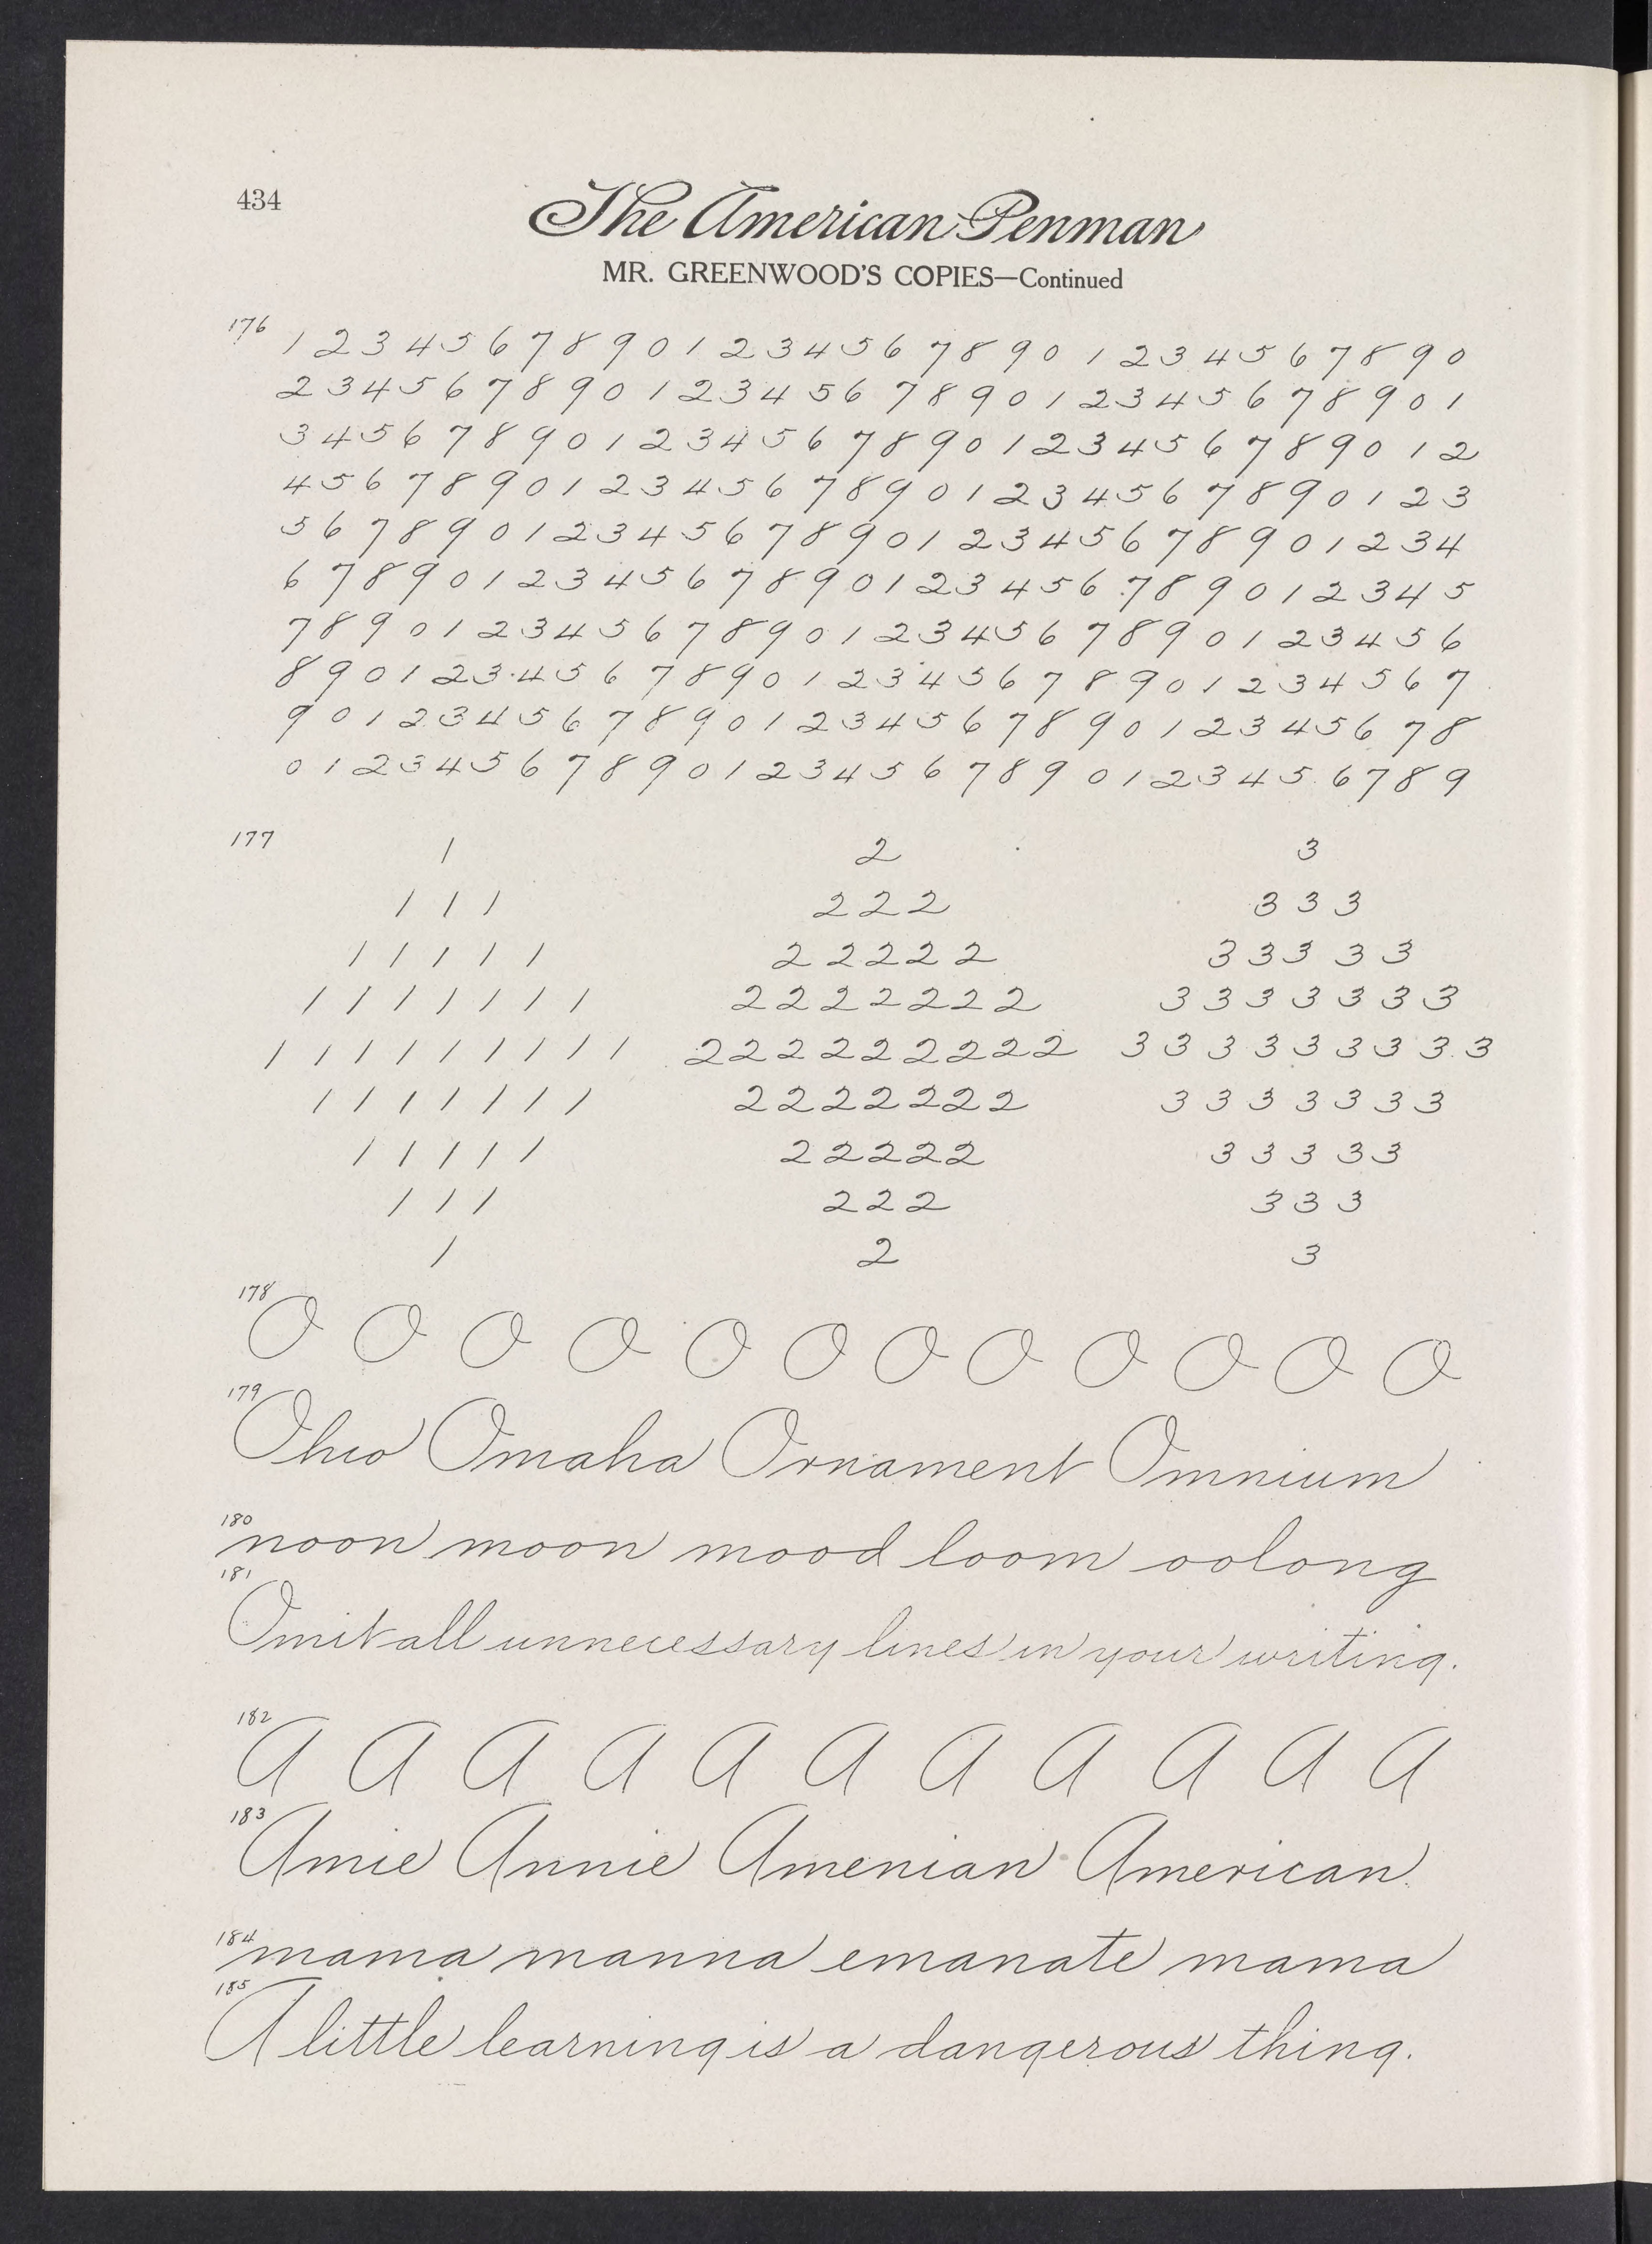 434
The American Penman
MR. GREENWOOD'S COPIES—Continued
176 1 2 3 4 5 6 7 8 9 0 1 2 3 4 5 6 7 8 9 0 1 2 3 4 5 6 7 8 9 0
2 3 4 5 6 7 8 9 0 1 2 3 4 5 6 7 8 9 0 1 2 3 4 5 6 7 8 9 0 1
3 4 5 6 7 8 9 0 1 2 3 4 5 6 7 8 9 0 1 2 3 4 5 6 7 8 9 0 1 2
4 5 6 7 8 9 0 1 2 3 4 5 6 7 8 9 0 1 2 3 4 5 6 7 8 9 0 1 2 3
5 6 7 8 9 0 1 2 3 4 5 6 7 8 9 0 1 2 3 4 5 6 7 8 9 0 1 2 3 4
6 7 8 9 0 1 2 3 4 5 6 7 8 9 0 1 2 3 4 5 6 7 8 9 0 1 2 3 4 5
7 8 9 0 1 2 3 4 5 6 7 8 9 0 1 2 3 4 5 6 7 8 9 0 1 2 3 4 5 6
8 9 0 1 2 3 4 5 6 7 8 9 0 1 2 3 4 5 6 7 8 9 0 1 2 3 4 5 6 7
9 0 1 2 3 4 5 6 7 8 9 0 1 2 3 4 5 6 7 8 9 0 1 2 3 4 5 6 7 8
0 1 2 3 4 5 6 7 8 9 0 1 2 3 4 5 6 7 8 9 0 1 2 3 4 5 6 7 8 9
177 1 2 3
1 1 1 2 2 2 3 3 3
1 1 1 1 1 2 2 2 2 2 3 3 3 3 3
1 1 1 1 1 1 1 2 2 2 2 2 2 2 3 3 3 3 3 3 3
1 1 1 1 1 1 1 1 1 2 2 2 2 2 2 2 2 2 3 3 3 3 3 3 3 3 3
1 1 1 1 1 1 1 2 2 2 2 2 2 2 3 3 3 3 3 3 3
1 1 1 1 1 2 2 2 2 2 3 3 3 3 3
1 1 1 2 2 2 3 3 3
1 2 3
178 O O O O O O O O O O O O
179 Ohio Omaha Ornament Omnium
180 noon moon mood loom oolong
181 Omit all unnecessary lines in your writing.
182 A A A A A A A A A A A
183 Amie Annie Amenian American.
184 mama manna emanate mama
185 A little learning is a dangerous thing.